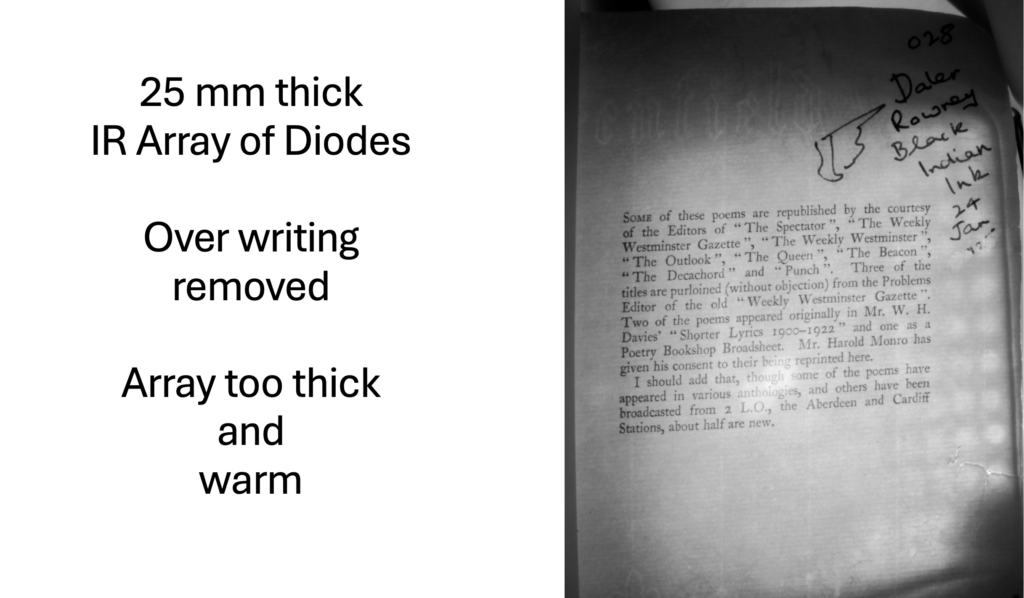 25 mm thick
IR Array of Diodes
Over writing
removed
Array too thick
and
warm
028
Daler
Rowney
Black
Indian
Ink
24
Jan.
SOME of these poems are republished by the courtesy
of the Editors of “The Spectator”, “The Weekly
Westminster Gazette”, “The Weekly Westminster”,
“The Outlook”, “The Queen”, “The Beacon”,
“The Decachord” and “Punch”. Three of the
titles are purloined (without objection) from the Problems
Editor of the old “Weekly Westminster Gazette”.
Two of the poems appeared originally in Mr. W. H.
Davies’ “Shorter Lyrics 1900–1922” and one as a
Poetry Bookshop Broadsheet. Mr. Harold Monro has
given his consent to their being reprinted here.
I should add that, though some of the poems have
appeared in various anthologies, and others have been
broadcasted from 2 L.O., the Aberdeen and Cardiff
Stations, about half are new.